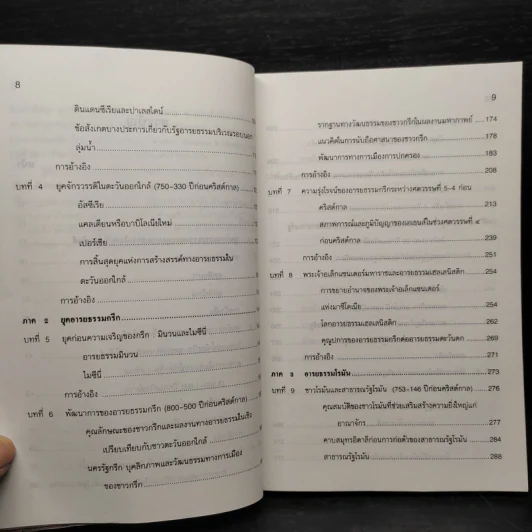 8
ดินแดนซีเรียและปาเลสไตน์
ข้อสังเกตบางประการเกี่ยวกับรัฐอารยธรรมบริเวณรอบนอก
ลุ่มน้ำ
การอ้างอิง
บทที่ 4 ยุคจักรวรรดิในตะวันออกใกล้ (750-330 ปีก่อนคริสต์กาล)
อัสซีเรีย
แคลเดียนหรือบาบิโลเนียใหม่
เปอร์เซีย
การสิ้นสุดยุคแห่งการสร้างสรรค์ทางอารยธรรมใน
ตะวันออกใกล้
การอ้างอิง
ภาค 2 ยุคอารยธรรมกรีก
บทที่ 5 ยุคก่อนความเจริญของกรีก : มินวนและไมซีนี่
อารยธรรมมินวน
ไมซีนี่
การอ้างอิง
บทที่ 6 พัฒนาการของอารยธรรมกรีก (800-500 ปีก่อนคริสต์กาล)
คุณลักษณะของชาวกรีกและผลงานทางอารยธรรมในเชิง
เปรียบเทียบกับชาวตะวันออกใกล้
นครรัฐกรีก บุคลิกภาพและวัฒนธรรมทางการเมือง
ของชาวกรีก
9
รากฐานทางวัฒนธรรมของชาวกรีกในผลงานมหากาพย์ 174
แนวคิดในการนับถือศาสนาของชาวกรีก 178
พัฒนาการทางการเมืองการปกครอง 183
การอ้างอิง 208
บทที่ 7 ความรุ่งโรจน์ของอารยธรรมกรีกระหว่างศตวรรษที่ 5-4 ก่อน
คริสต์กาล 213
สภาพการณ์และภูมิปัญญาของเอเธนส์ในช่วงศตวรรษที่ ๔
ก่อนคริสต์กาล 239
การอ้างอิง 251
บทที่ 8 พระเจ้าอเล็กแซนเดอร์มหาราชและอารยธรรมเฮลเลนิสติก 254
การขยายอำนาจของพระเจ้าอเล็กแซนเดอร์
แห่งมาซีโดเนีย 254
โลกอารยธรรมเฮลเลนิสติก 262
คุณูปการของอารยธรรมกรีกต่ออารยธรรมตะวันตก 269
การอ้างอิง 271
ภาค 3 อารยธรรมโรมัน 273
บทที่ 9 ชาวโรมันและสาธารณรัฐโรมัน (753-146 ปีก่อนคริสต์กาล) 276
คุณสมบัติของชาวโรมันที่ช่วยเสริมสร้างความยิ่งใหญ่แก่
อาณาจักร 277
คาบสมุทรอิตาลีก่อนการก่อตัวของสาธารณรัฐโรมัน 284
สาธารณรัฐโรมัน 288